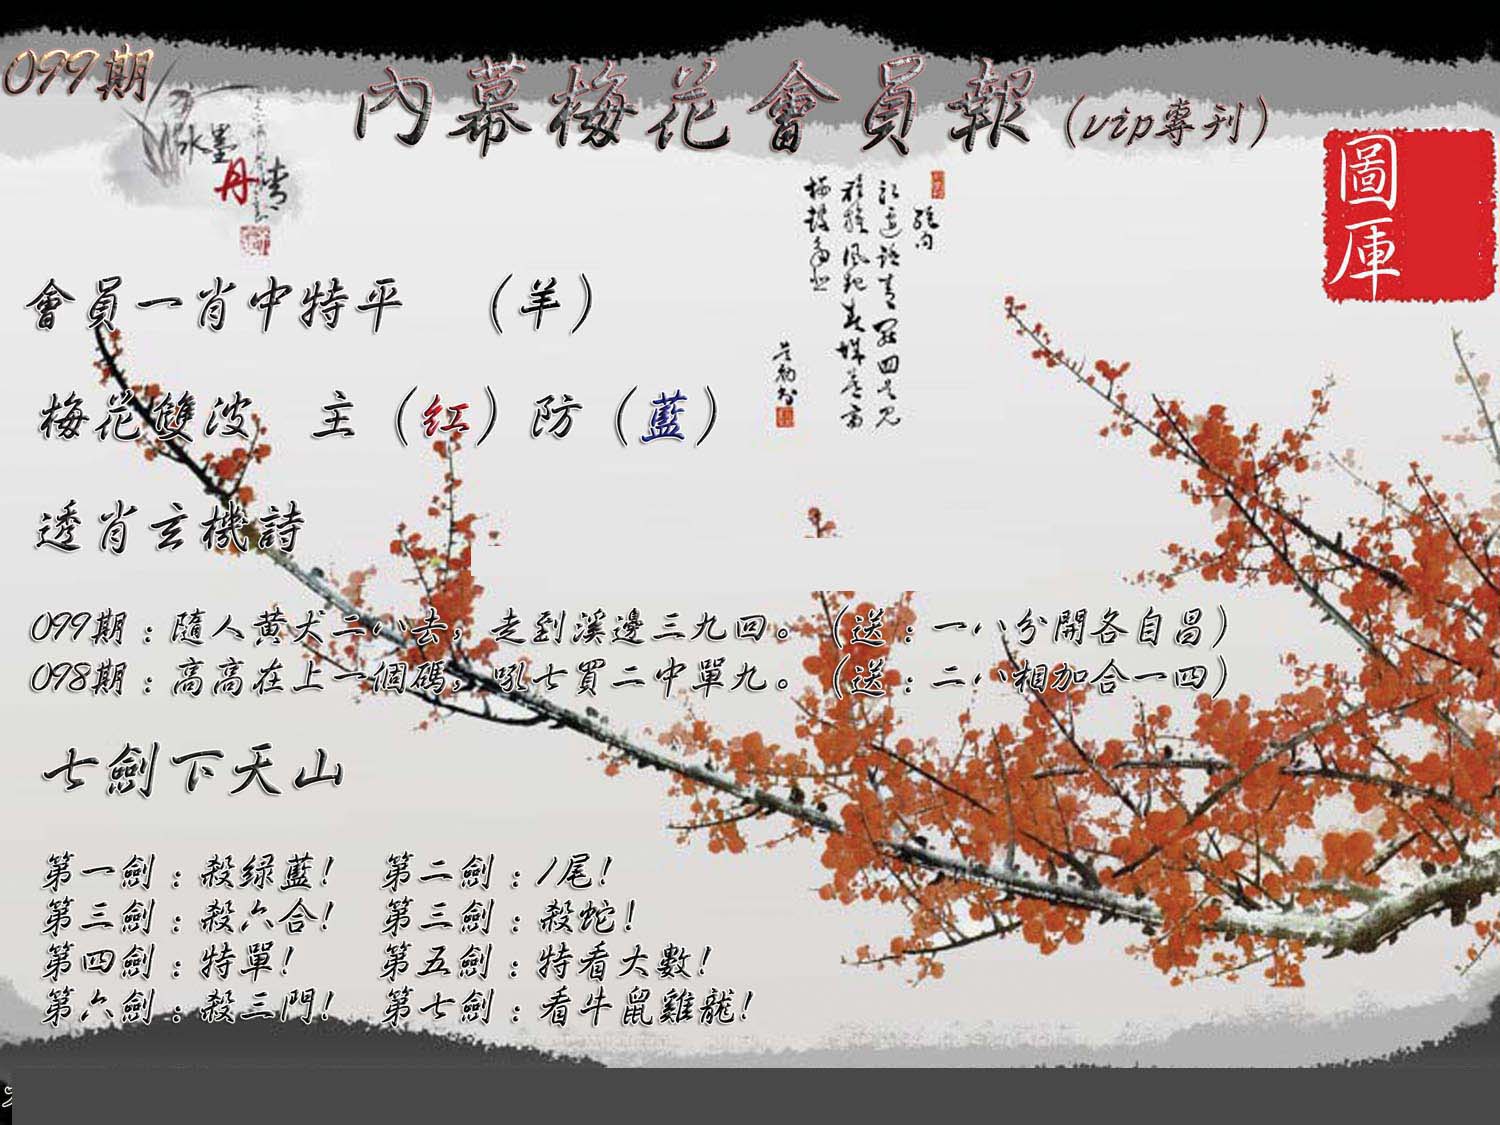 099期
內幕梅花會員報（vip專刊）
水墨
丹青
圖庫
會員一肖中特平　（羊）
梅花雙波　主（红）防（藍）
透肖玄機詩
099期：隨人黄犬二八去，走到溪邊三九回。（送：一八分開各自昌）
098期：高高在上一個碼，吼七買二中單九。（送：二八相加合一四）
七劍下天山
第一劍：殺绿藍！　第二劍：1尾！
第三劍：殺六合！　第三劍：殺蛇！
第四劍：特單！　第五劍：特看大數！
第六劍：殺三門！　第七劍：看牛鼠雞龍！